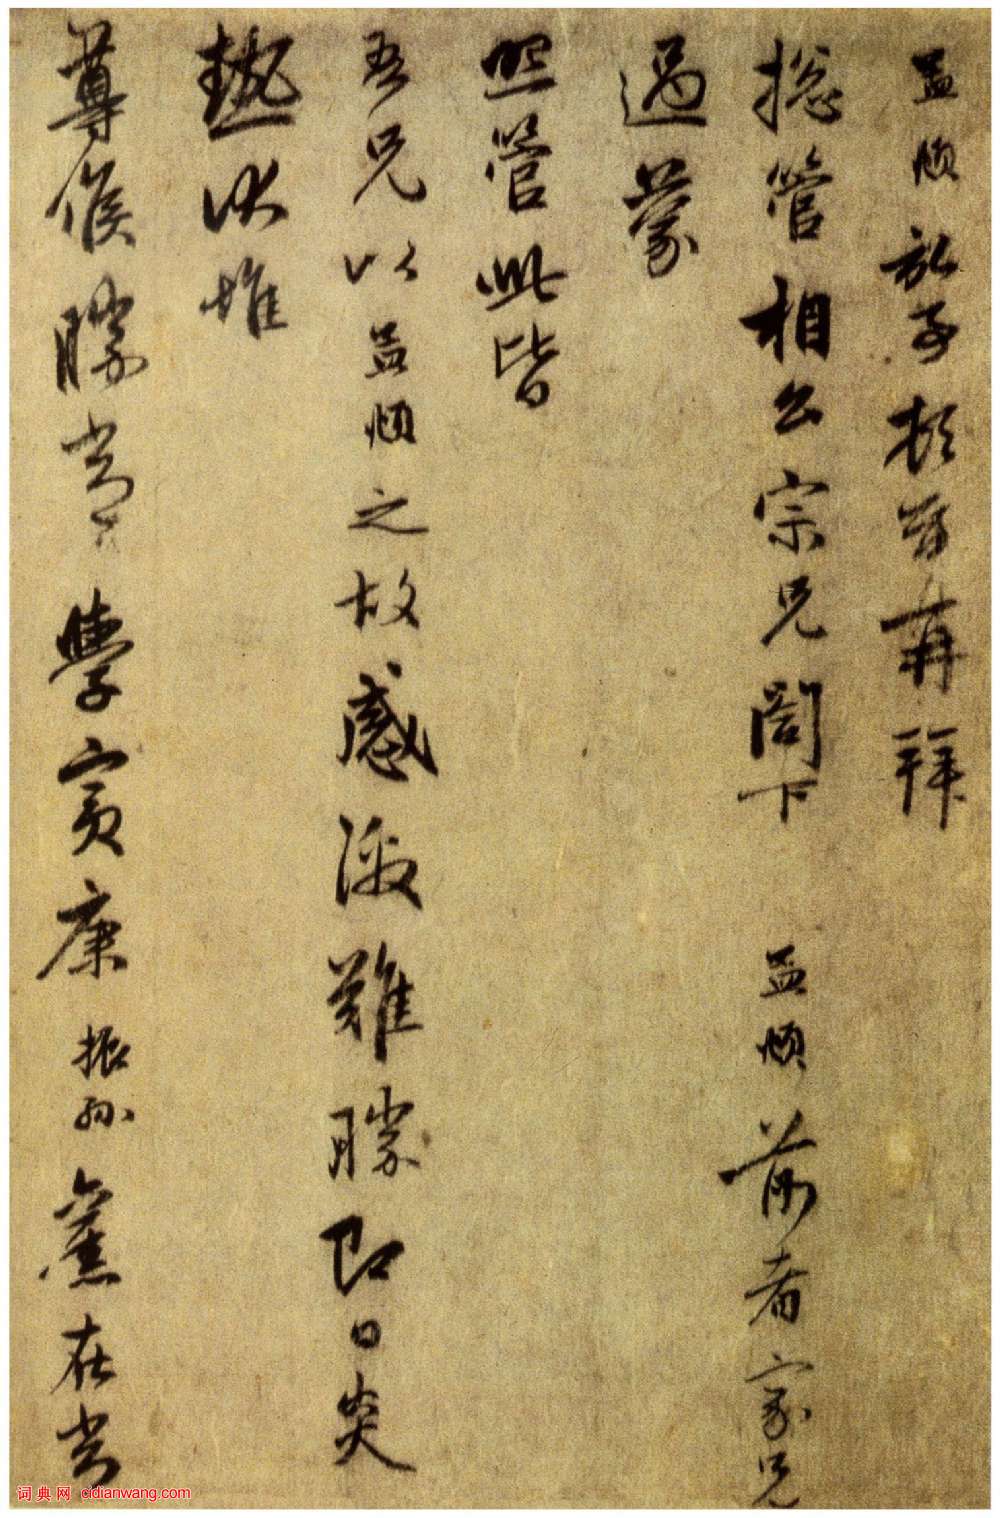 孟頫記事頓首再拜
總管相公宗兄閤下 孟頫前者家兄
過蒙
照管此皆
吾兄以孟頫之故感激難勝即日炎
熱伏惟
尊候勝常 學賓康振孫舊在常
词典网 cidianwang.com